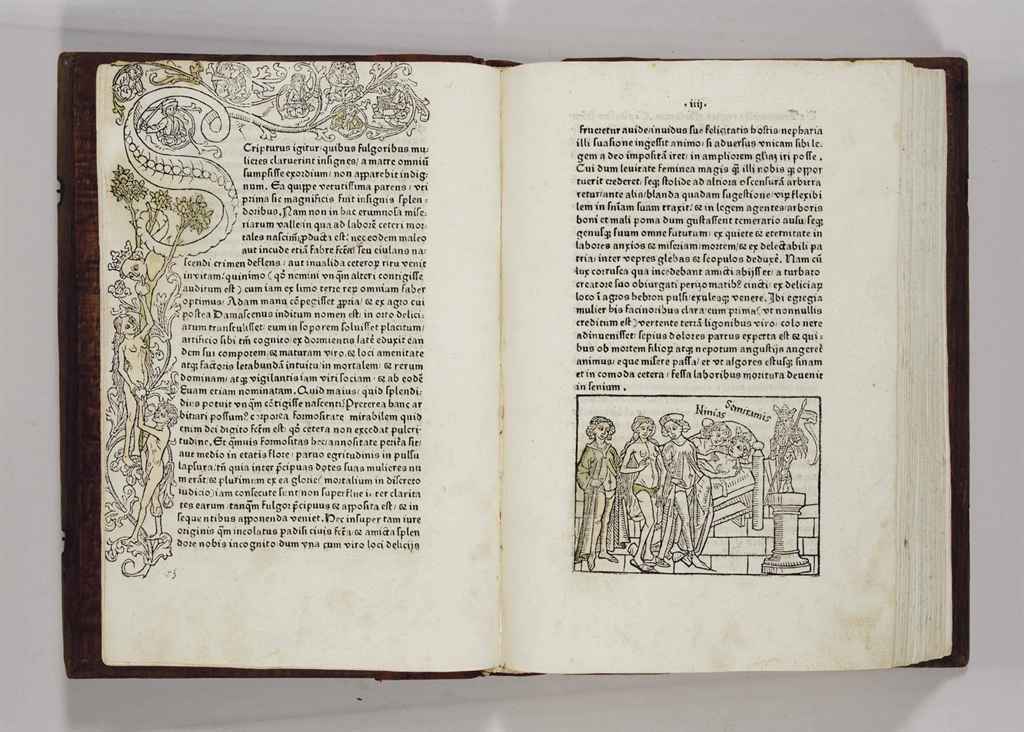 Scripturus igitur quibus fulgoribus mu-
lieres claruerint insignes, a matre omniū
sumpsisse exordium non apparebit indig-
num. Ea quippe vetutissima parens, vti
prima sic magnificis fuit insignis splen-
doribus. Nam non in hac erumnosa mise-
riarum valle in qua ad laborē ceteri mor-
tales nascimur producta est: nec eodem maleo
aut incude etiā fabrefcm̄ seu eiulans na-
scendi crimen deflens, aut invalida ceterorum ritu venit
in vitam: quinimo
auditum est) cum iam ex limo terre rerum omnium faber
optimus Adam manu compegisset propria, et ex agro cui
postea Damascenus inditum nomen est in orto delici-
arum transtulisset eum in soporem soluisset placitum
artificio sibi tm̄ cognito ex dormientis latē eduxit ean
dem sui compotem et maturam viro, et loci amenitate
atque factoris letabundā intuitu immortalem et rerum
dominam, atque vigilantis iam viri sociam, et ab eodē
Euam etiam nominatam. Quid maius quid splendi-
dius potuit vnquam contigisse nascenti? Preterea hanc ar
bitrari possumus corporea formositate mirabilem quid
enim dei digito fcm̄ est qd cetera non excedat pulcri
tudine. Et quamuis formositas hec annositate peritura sit
aut medio in etatis flore paruo egritudinis in pulsu
lapsura, tn̄ quia inter precipuas dotes suas mulieres nu
merāt et plurimum ex ea glorie mortalium in discreto
iudicio iam consecute sunt non superflue inter clarita
tes earum tanquam fulgor precipuus et apposita est, et in
sequentibus apponenda veniet. Hec insuper tam iure
originis quam incolatus padisi ciuis fcā et amicta splen
dore nobis incognito dum vna cum viro loci delicijs
53
·iiij·
frueretur auide inuidus sue felicitatis hostis nepharia
illi suasione ingessit animo si aduersus vnicam sibi le
gem a deo impositā iret, in ampliorem gliam iri posse.
Cui dum leuitate feminea magis quam illi nobisque oppor
tuerit crederet seque stolide ad altiora conscensurā arbitra
retur ante alia blanda quadam sugestione virum flexibi
lem in sn̄iam suam traxit, et in legem agentes arboris
boni et mali poma dum gustassent temerario ausu seque
genusque suum omne futurum ex quiete et eternitate in
labores anxios et miseriam mortem et ex delectabili pa
tria inter vepres glebas et scopulos deduxē. Nam cū
lux corusca qua incedebant amicti abijsset a turbato
creatore suo obiurgati perizomatibus cincti ex deliciarum
loco in agros hebron pulsi exulesque venere. Ibi egregia
mulier his facinoribus clara cum prima (vt nonnullis
creditum est) vertente terrā ligonibus viro, colo nere
adinuenisset sepius dolores partus experta est et qui-
bus ob mortem filiorum atque nepotum angustijs angeret
animus eque misere passa, et vt algores estusque sinam
et incomoda cetera fessa laboribus moritura deuenit
in senium.
Ninias Semiramis